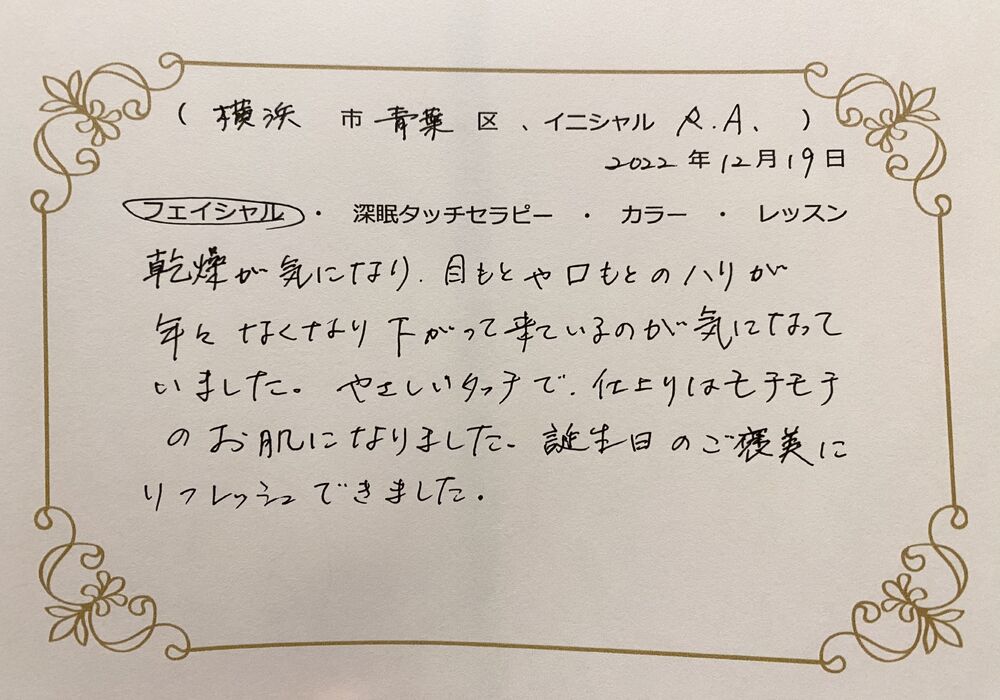 ( 横浜 市 青葉 区 、イニシャル R.A. )
2022 年 12 月 19 日
フェイシャル ・ 深眠タッチセラピー ・ カラー ・ レッスン
乾燥が気になり、目もとや口もとのハリが
年々なくなり下がって来ているのが気になって
いました。やさしいタッチで、仕上りはモチモチ
のお肌になりました。誕生日のご褒美に
リフレッシュできました。